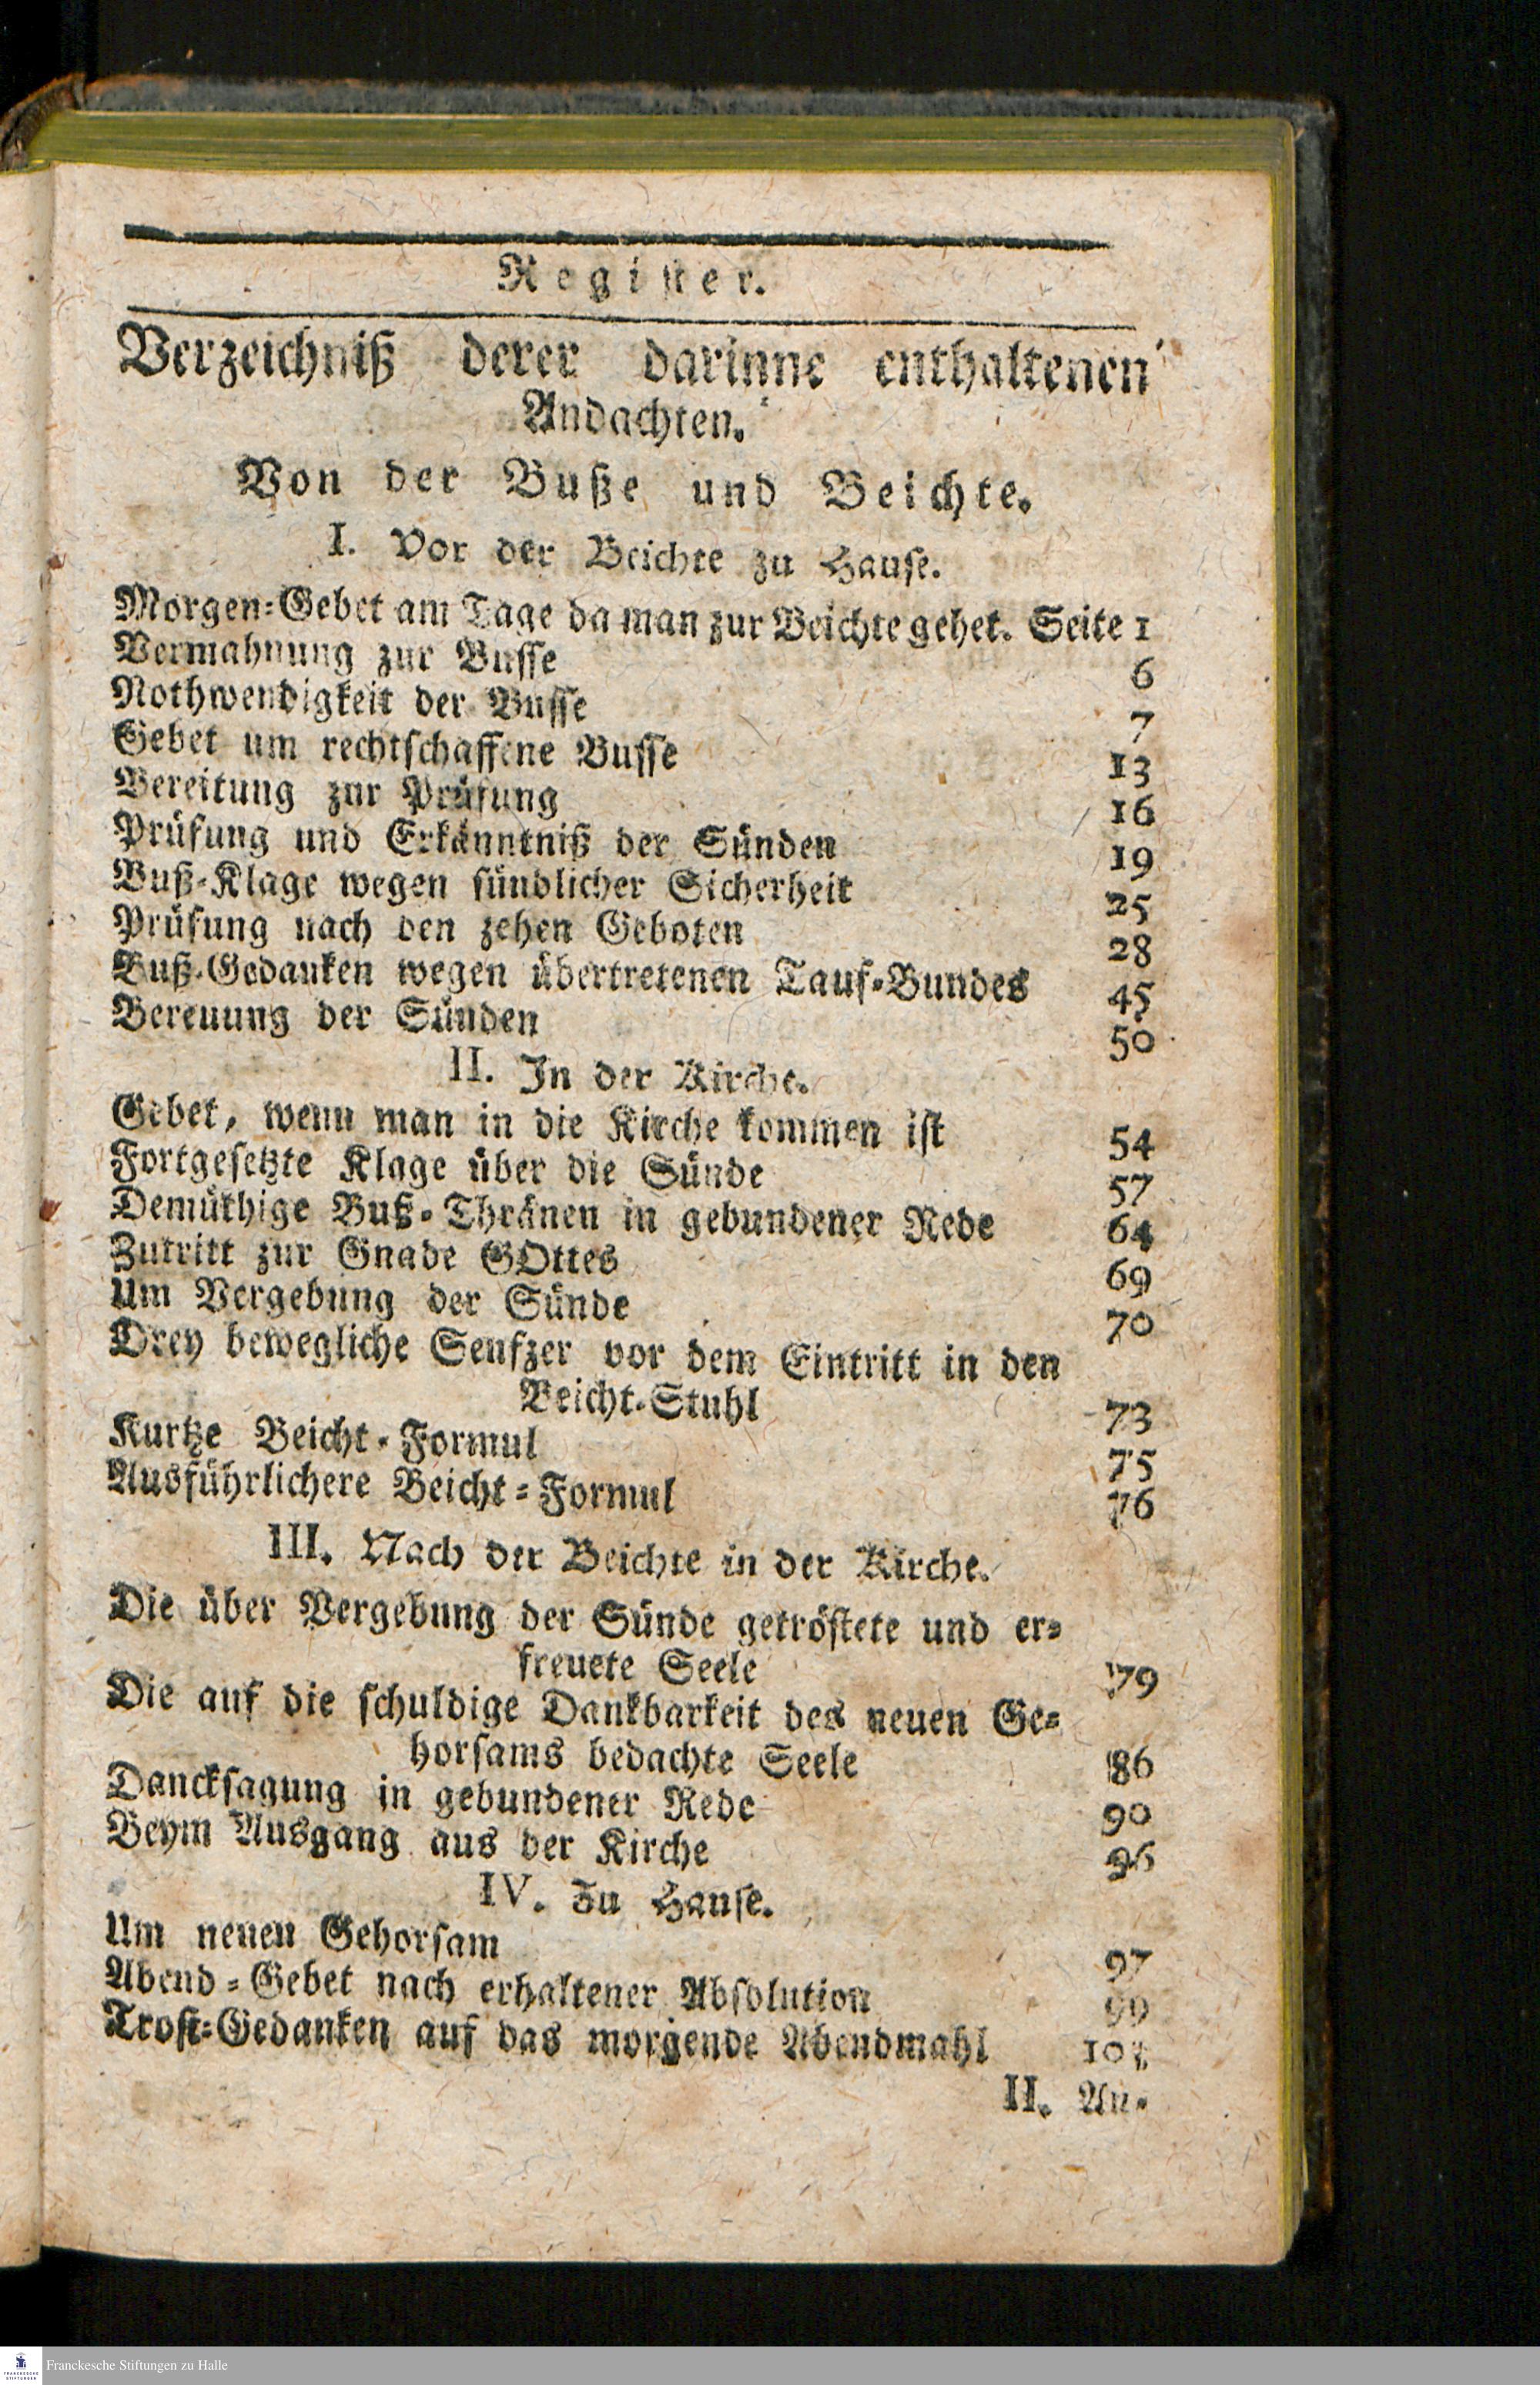 Register.
Verzeichniß derer darinne enthaltenen
Andachten.
Von der Buße und Beichte.
I. Vor der Beichte zu Hause.
Morgen=Gebet am Tage da man zur Beichte gehet. Seite 1
Vermahnung zur Busse 6
Nothwendigkeit der Busse 7
Gebet um rechtschaffene Busse 13
Bereitung zur Prüfung 16
Prüfung und Erkänntniß der Sünden 19
Buß=Klage wegen sündlicher Sicherheit 25
Prüfung nach den zehen Geboten 28
Buß=Gedanken wegen übertretenen Tauf=Bundes 45
Bereuung der Sünden 50
II. In der Kirche.
Gebet, wenn man in die Kirche kommen ist 54
Fortgesetzte Klage über die Sünde 57
Demüthige Buß=Thränen in gebundener Rede 64
Zutritt zur Gnade GOttes 69
Um Vergebung der Sünde 70
Drey bewegliche Seufzer vor dem Eintritt in den
Beicht=Stuhl 73
Kurtze Beicht=Formul 75
Ausführlichere Beicht=Formul 76
III. Nach der Beichte in der Kirche.
Die über Vergebung der Sünde getröstete und er=
freuete Seele 79
Die auf die schuldige Dankbarkeit des neuen Ge=
horsams bedachte Seele 86
Dancksagung in gebundener Rede 90
Beym Ausgang aus der Kirche 96
IV. Zu Hause.
Um neuen Gehorsam 97
Abend=Gebet nach erhaltener Absolution 99
Trost=Gedanken auf das morgende Abendmahl
II. An=
Franckesche Stiftungen zu Halle